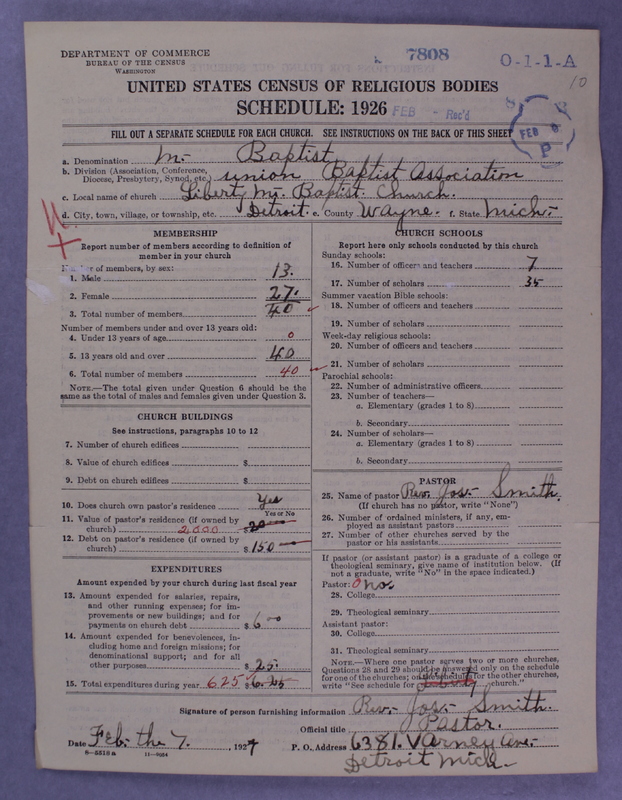 DEPARTMENT OF COMMERCE
BUREAU OF THE CENSUS
WASHINGTON
7808
O-1-1-A
10
UNITED STATES CENSUS OF RELIGIOUS BODIES
SCHEDULE: 1926
FEB - Rec'd
FEB
P
FILL OUT A SEPARATE SCHEDULE FOR EACH CHURCH. SEE INSTRUCTIONS ON THE BACK OF THIS SHEET
a. Denomination M- Baptist
b. Division (Association, Conference, Diocese, Presbytery, Synod, etc.) union Baptist Association
c. Local name of church Liberty Mt. Baptist Church.
d. City, town, village, or township, etc. Detroit. e. County Wayne. f. State Mich-
MEMBERSHIP
Report number of members according to definition of
member in your church
Number of members, by sex:
1. Male 13.
2. Female 27.
3. Total number of members 40
Number of members under and over 13 years old:
4. Under 13 years of age 0
5. 13 years old and over 40
6. Total number of members 40
NOTE.—The total given under Question 6 should be the
same as the total of males and females given under Question 3.
CHURCH BUILDINGS
See instructions, paragraphs 10 to 12
7. Number of church edifices
8. Value of church edifices $
9. Debt on church edifices $
10. Does church own pastor's residence Yes
Yes or No
11. Value of pastor's residence (if owned by
church) 2000 $ 20
12. Debt on pastor's residence (if owned by
church) $ 150
EXPENDITURES
Amount expended by your church during last fiscal year
13. Amount expended for salaries, repairs,
and other running expenses; for im-
provements or new buildings; and for
payments on church debt $ 6 00
14. Amount expended for benevolences, in-
cluding home and foreign missions; for
denominational support; and for all
other purposes $ 25.
15. Total expenditures during year 625 $ 6.25
CHURCH SCHOOLS
Report here only schools conducted by this church
Sunday schools:
16. Number of officers and teachers 7
17. Number of scholars 35
Summer vacation Bible schools:
18. Number of officers and teachers
19. Number of scholars
Week-day religious schools:
20. Number of officers and teachers
21. Number of scholars
Parochial schools:
22. Number of administrative officers
23. Number of teachers—
a. Elementary (grades 1 to 8)
b. Secondary
24. Number of scholars—
a. Elementary (grades 1 to 8)
b. Secondary
PASTOR
25. Name of pastor Rev. Jos- Smith.
(If church has no pastor, write "None")
26. Number of ordained ministers, if any, em-
ployed as assistant pastors
27. Number of other churches served by the
pastor or his assistants
If pastor (or assistant pastor) is a graduate of a college or
theological seminary, give name of institution below. (If
not a graduate, write "No" in the space indicated.)
Pastor: 0 no.
28. College
29. Theological seminary
Assistant pastor:
30. College
31. Theological seminary
NOTE.—Where one pastor serves two or more churches,
Questions 28 and 29 should be answered only on the schedule
for one of the churches; on the schedules for the other churches,
write "See schedule for church."
Signature of person furnishing information Rev- Jos- Smith.
Official title Pastor.
Date Feb- the 7. , 1927 P. O. Address 6381. Varney Ave-
Detroit Mich-
8—5510 a